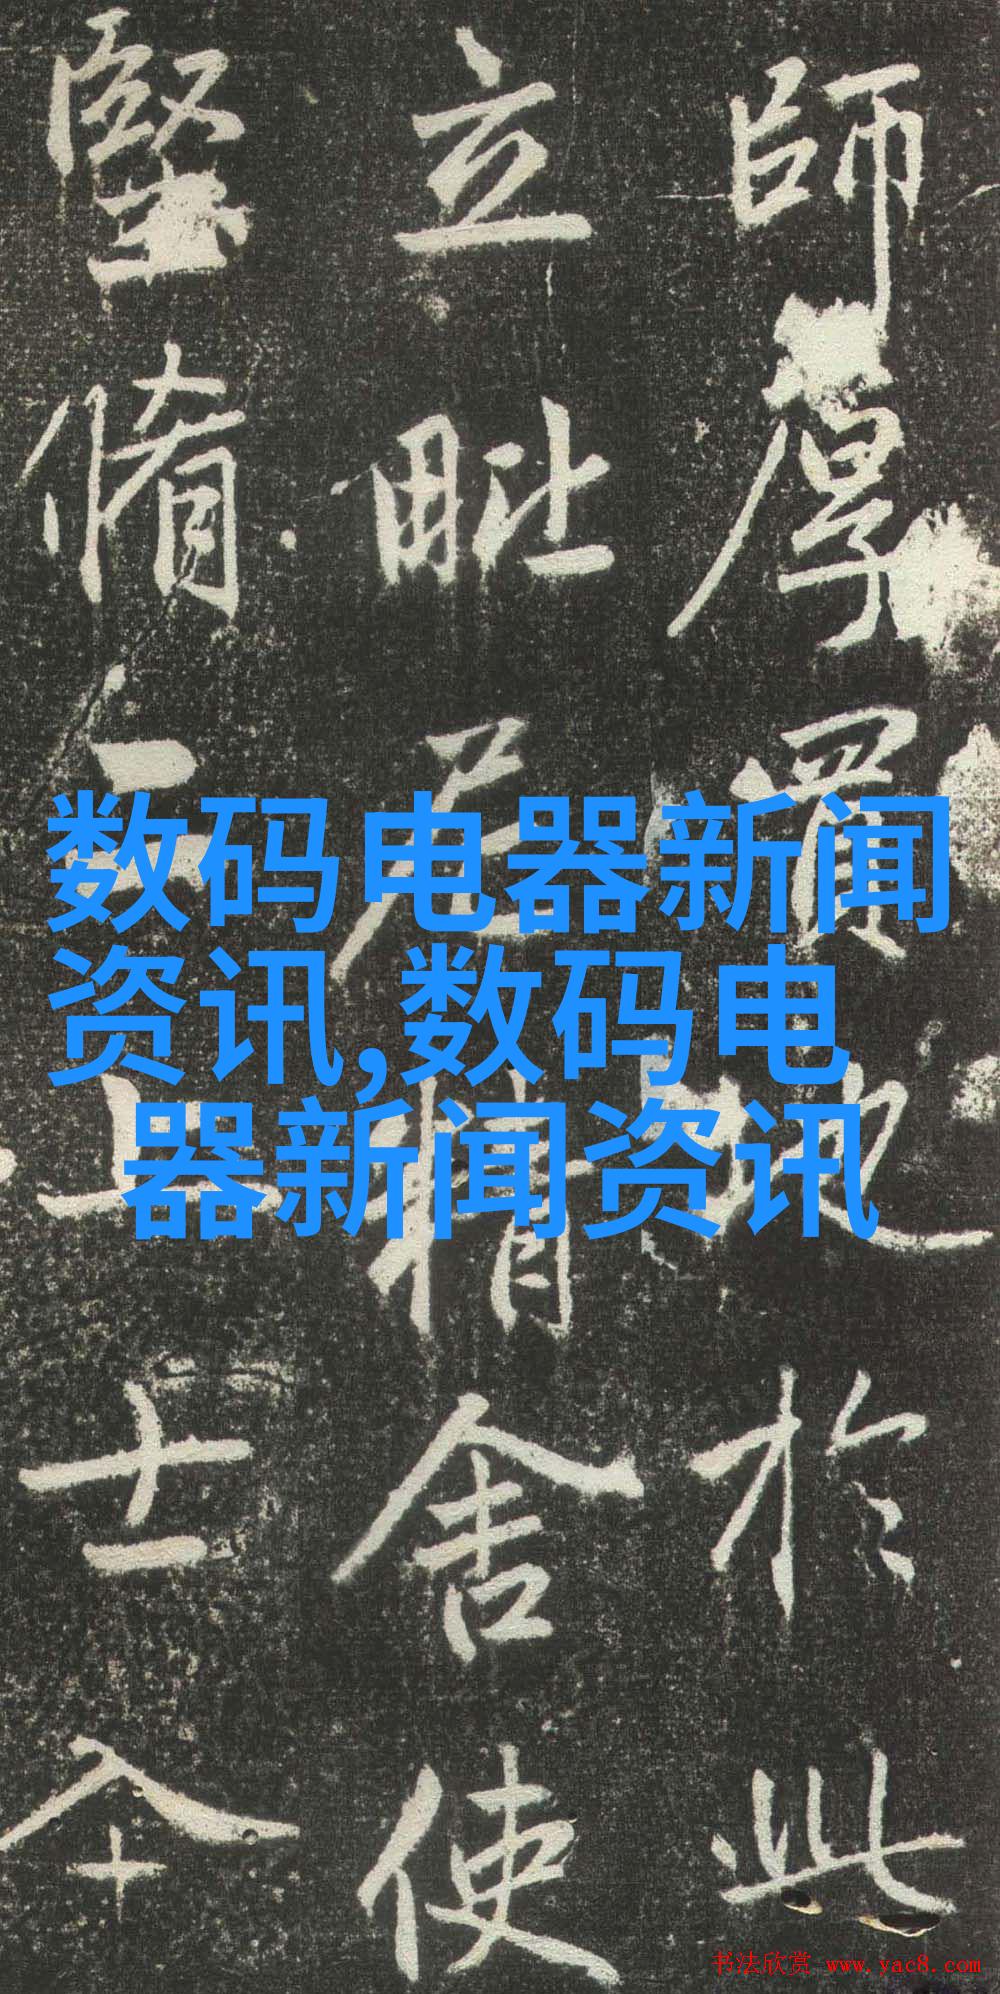 師厚買地於此
立毗尼精舍使
堅脩上士
数码电器新闻
资讯,数码电
器新闻资讯
书法欣赏 www.yac8.com